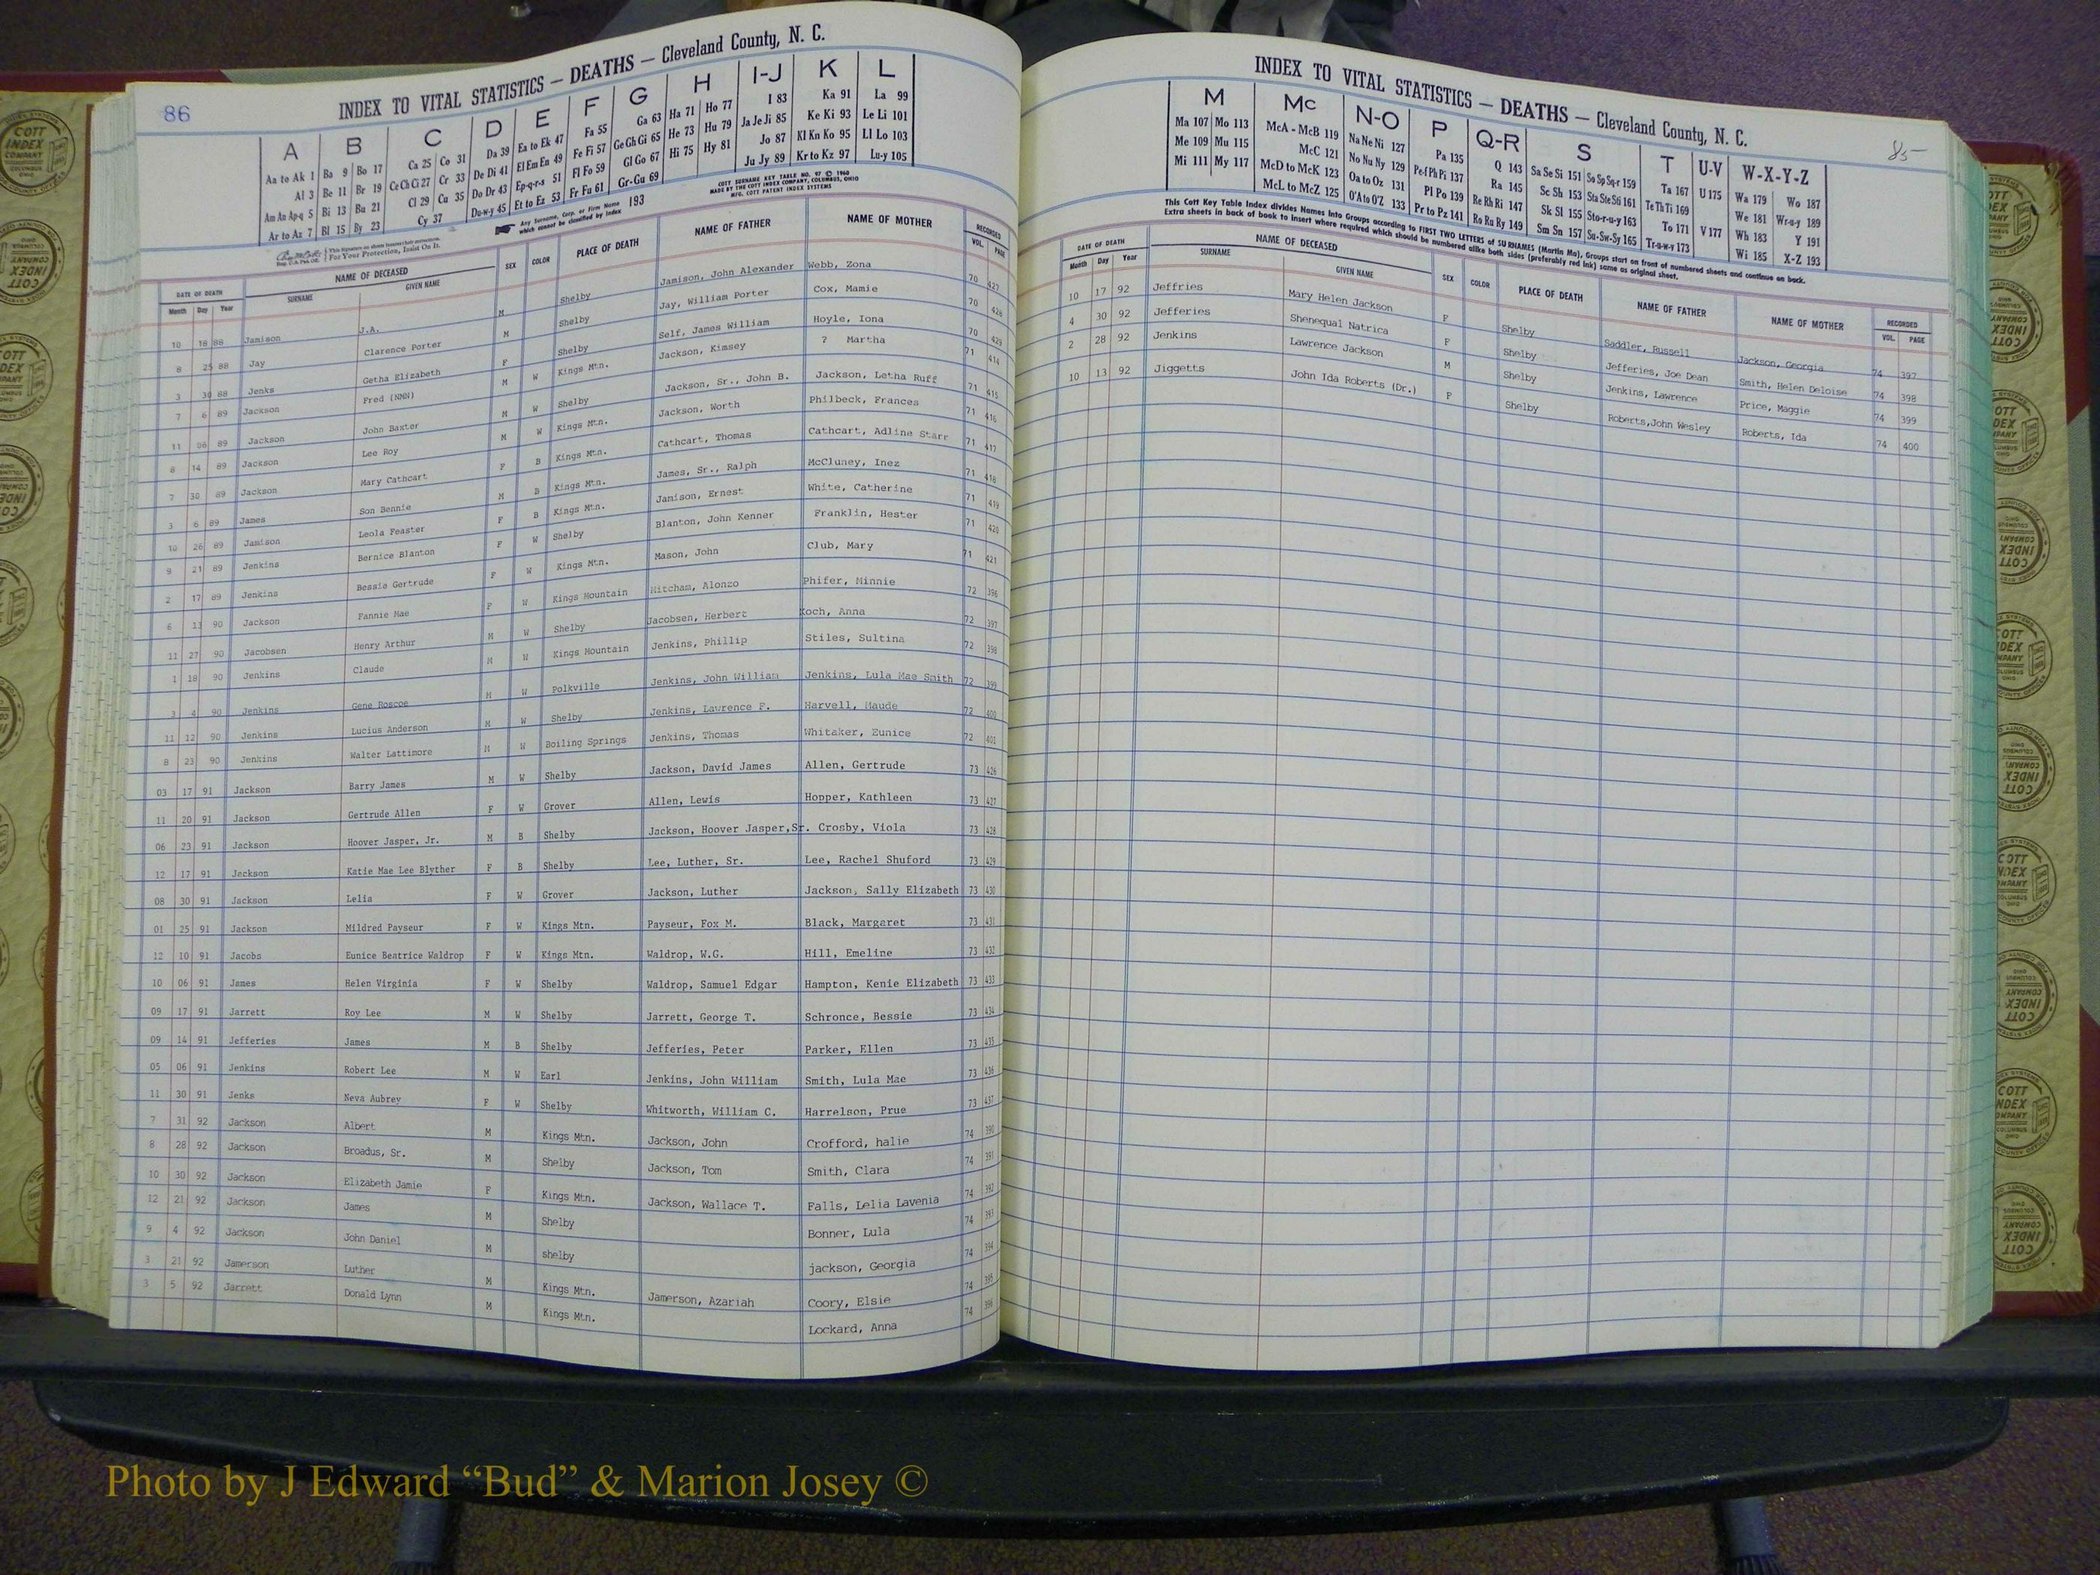 86
INDEX TO VITAL STATISTICS — DEATHS — Cleveland County, N. C.
A B C D E F G H I-J K L
Aa to Ak 1 Ba 9 Bo 17 Ca 25 Co 31 Da 39 Ea to Ek 47 Fa 55 Ga 63 Ha 71 Ho 77 I 83 Ka 91 La 99
Al 3 Be 11 Br 19 Ce Ch Ci 27 Cr 33 De Di 41 El Em En 49 Fe Fi 57 Ge Gh Gi 65 He 73 Hu 79 Ja Je Ji 85 Ke Ki 93 Le Li 101
Am An Ap-q 5 Bi 13 Bu 21 Cl 29 Cu 35 Do Dr 43 Ep-q-r-s 51 Fl Fo 59 Gl Go 67 Hi 75 Hy 81 Jo 87 Kl Kn Ko 95 Ll Lo 103
Ar to Az 7 Bl 15 By 23 Cy 37 Du-w-y 45 Et to Ez 53 Fr Fu 61 Gr-Gu 69 Ju Jy 89 Kr to Kz 97 Lu-y 105
Any Surname, Corp. or Firm Name which cannot be classified by Index 193
COTT SURNAME KEY TABLE NO. 97 © 1960
MADE BY THE COTT INDEX COMPANY, COLUMBUS, OHIO
MFG. COTT PATENT INDEX SYSTEMS
For Your Protection, Insist On It.
DATE OF DEATH NAME OF DECEASED SEX COLOR PLACE OF DEATH NAME OF FATHER NAME OF MOTHER RECORDED
Month Day Year SURNAME GIVEN NAME VOL. PAGE
10 18 88 Jamison J.A. M Shelby Jamison, John Alexander Webb, Zona 70 427
8 25 88 Jay Clarence Porter M Shelby Jay, William Porter Cox, Mamie 70 428
3 30 88 Jenks Getha Elizabeth F Shelby Self, James William Hoyle, Iona 70 429
7 6 89 Jackson Fred (NMN) M W Kings Mtn. Jackson, Kimsey ? Martha 71 414
11 06 89 Jackson John Baxter M W Shelby Jackson, Sr., John B. Jackson, Letha Ruff 71 415
8 14 89 Jackson Lee Roy M W Kings Mtn. Jackson, Worth Philbeck, Frances 71 416
7 30 89 Jackson Mary Cathcart F B Kings Mtn. Cathcart, Thomas Cathcart, Adline Starr 71 417
3 6 89 James Son Bennie M B Kings Mtn. James, Sr., Ralph McCluney, Inez 71 418
10 26 89 Jamison Leola Feaster F B Kings Mtn. Jamison, Ernest White, Catherine 71 419
9 21 89 Jenkins Bernice Blanton F W Shelby Blanton, John Kenner Franklin, Hester 71 420
2 17 89 Jenkins Bessie Gertrude F W Kings Mtn. Mason, John Club, Mary 71 421
6 13 90 Jackson Fannie Mae F W Kings Mountain Mitcham, Alonzo Phifer, Minnie 72 396
11 27 90 Jacobsen Henry Arthur M W Shelby Jacobsen, Herbert Koch, Anna 72 397
1 18 90 Jenkins Claude M W Kings Mountain Jenkins, Phillip Stiles, Sultina 72 398
3 4 90 Jenkins Gene Roscoe M W Polkville Jenkins, John William Jenkins, Lula Mae Smith 72 399
11 12 90 Jenkins Lucius Anderson M W Shelby Jenkins, Lawrence F. Harvell, Maude 72 400
8 23 90 Jenkins Walter Lattimore M W Boiling Springs Jenkins, Thomas Whitaker, Eunice 72
03 17 91 Jackson Barry James M W Shelby Jackson, David James Allen, Gertrude 73 426
11 20 91 Jackson Gertrude Allen F W Grover Allen, Lewis Hopper, Kathleen 73 427
06 23 91 Jackson Hoover Jasper, Jr. M B Shelby Jackson, Hoover Jasper,Sr. Crosby, Viola 73 428
12 17 91 Jackson Katie Mae Lee Blyther F B Shelby Lee, Luther, Sr. Lee, Rachel Shuford 73 429
08 30 91 Jackson Lelia F W Grover Jackson, Luther Jackson, Sally Elizabeth 73 430
01 25 91 Jackson Mildred Payseur F W Kings Mtn. Payseur, Fox M. Black, Margaret 73 431
12 10 91 Jacobs Eunice Beatrice Waldrop F W Kings Mtn. Waldrop, W.G. Hill, Emeline 73 432
10 06 91 James Helen Virginia F W Shelby Waldrop, Samuel Edgar Hampton, Kenie Elizabeth 73 433
09 17 91 Jarrett Roy Lee M W Shelby Jarrett, George T. Schronce, Bessie 73 434
09 14 91 Jefferies James M B Shelby Jefferies, Peter Parker, Ellen 73 435
05 06 91 Jenkins Robert Lee M W Earl Jenkins, John William Smith, Lula Mae 73 436
11 30 91 Jenks Neva Aubrey F W Shelby Whitworth, William C. Harrelson, Prue 73 437
7 31 92 Jackson Albert M Kings Mtn. Jackson, John Crofford, halie 74 390
8 28 92 Jackson Broadus, Sr. M Shelby Jackson, Tom Smith, Clara 74 391
10 30 92 Jackson Elizabeth Jamie F Kings Mtn. Jackson, Wallace T. Falls, Lelia Lavenia 74 392
12 21 92 Jackson James M Shelby Bonner, Lula 74 393
9 4 92 Jackson John Daniel M shelby jackson, Georgia 74 394
3 21 92 Jamerson Luther M Kings Mtn. Jamerson, Azariah Coory, Elsie 74 395
3 5 92 Jarrett Donald Lynn M Kings Mtn. Lockard, Anna 74 396
INDEX TO VITAL STATISTICS — DEATHS — Cleveland County, N. C.
85
M Mc N-O P Q-R S T U-V W-X-Y-Z
Ma 107 Mo 113 McA - McB 119 Na Ne Ni 127 Pa 135 Q 143 Sa Se Si 151 So Sp Sq-r 159 Ta 167 U 175 Wa 179 Wo 187
Me 109 Mu 115 McC 121 No Nu Ny 129 Pe-f Ph Pi 137 Ra 145 Sc Sh 153 Sta Ste Sti 161 Te Th Ti 169 We 181 Wr-u-y 189
Mi 111 My 117 McD to McK 123 Oa to Oz 131 Pl Po 139 Re Rh Ri 147 Sk Sl 155 Sto-r-u-y 163 To 171 V 177 Wh 183 Y 191
McL to McZ 125 O'A to O'Z 133 Pr to Pz 141 Ro Ru Ry 149 Sm Sn 157 Su-Sw-Sy 165 Tr-u-w-y 173 Wi 185 X-Z 193
This Cott Key Table Index divides Names into Groups according to FIRST TWO LETTERS of SURNAMES (Martin Ma), Groups start on front of numbered sheets and continue on back.
Extra sheets in back of book to insert where required which should be numbered alike both sides (preferably red ink) same as original sheet.
DATE OF DEATH NAME OF DECEASED SEX COLOR PLACE OF DEATH NAME OF FATHER NAME OF MOTHER RECORDED
Month Day Year SURNAME GIVEN NAME VOL. PAGE
10 17 92 Jeffries Mary Helen Jackson F Shelby Saddler, Russell Jackson, Georgia 74 397
4 30 92 Jefferies Shenequal Natrica F Shelby Jefferies, Joe Dean Smith, Helen Deloise 74 398
2 28 92 Jenkins Lawrence Jackson M Shelby Jenkins, Lawrence Price, Maggie 74 399
10 13 92 Jiggetts John Ida Roberts (Dr.) F Shelby Roberts,John Wesley Roberts, Ida 74 400
Photo by J Edward “Bud” & Marion Josey ©